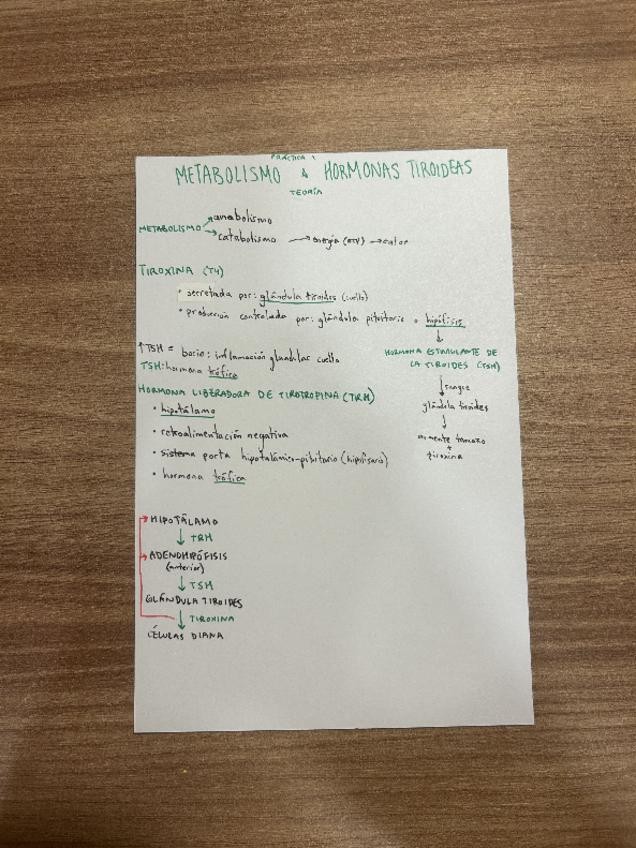 PRÁCTICA 1
METABOLISMO & HORMONAS TIROIDEAS
TEORÍA
METABOLISMO → anabolismo
→ catabolismo → energía (ATP) → calor
TIROXINA (T4)
• secretada por: glándula tiroides (cuello)
• producción controlada por: glándula pituitaria o hipófisis
↓
HORMONA ESTIMULANTE DE
LA TIROIDES (TSH)
↓ sangre
glándula tiroides
↓
aumente tamaño
+
tiroxina
↑TSH = bocio: inflamación glandular cuello
TSH: hormona trófica
HORMONA LIBERADORA DE TIROTROPINA (TRH)
• hipotálamo
• retroalimentación negativa
• sistema porta hipotalámico-pituitario (hipofisario)
• hormona trófica
HIPOTÁLAMO
↓ TRH
ADENOHIPÓFISIS
(anterior)
↓ TSH
GLÁNDULA TIROIDES
↓ TIROXINA
CÉLULAS DIANA